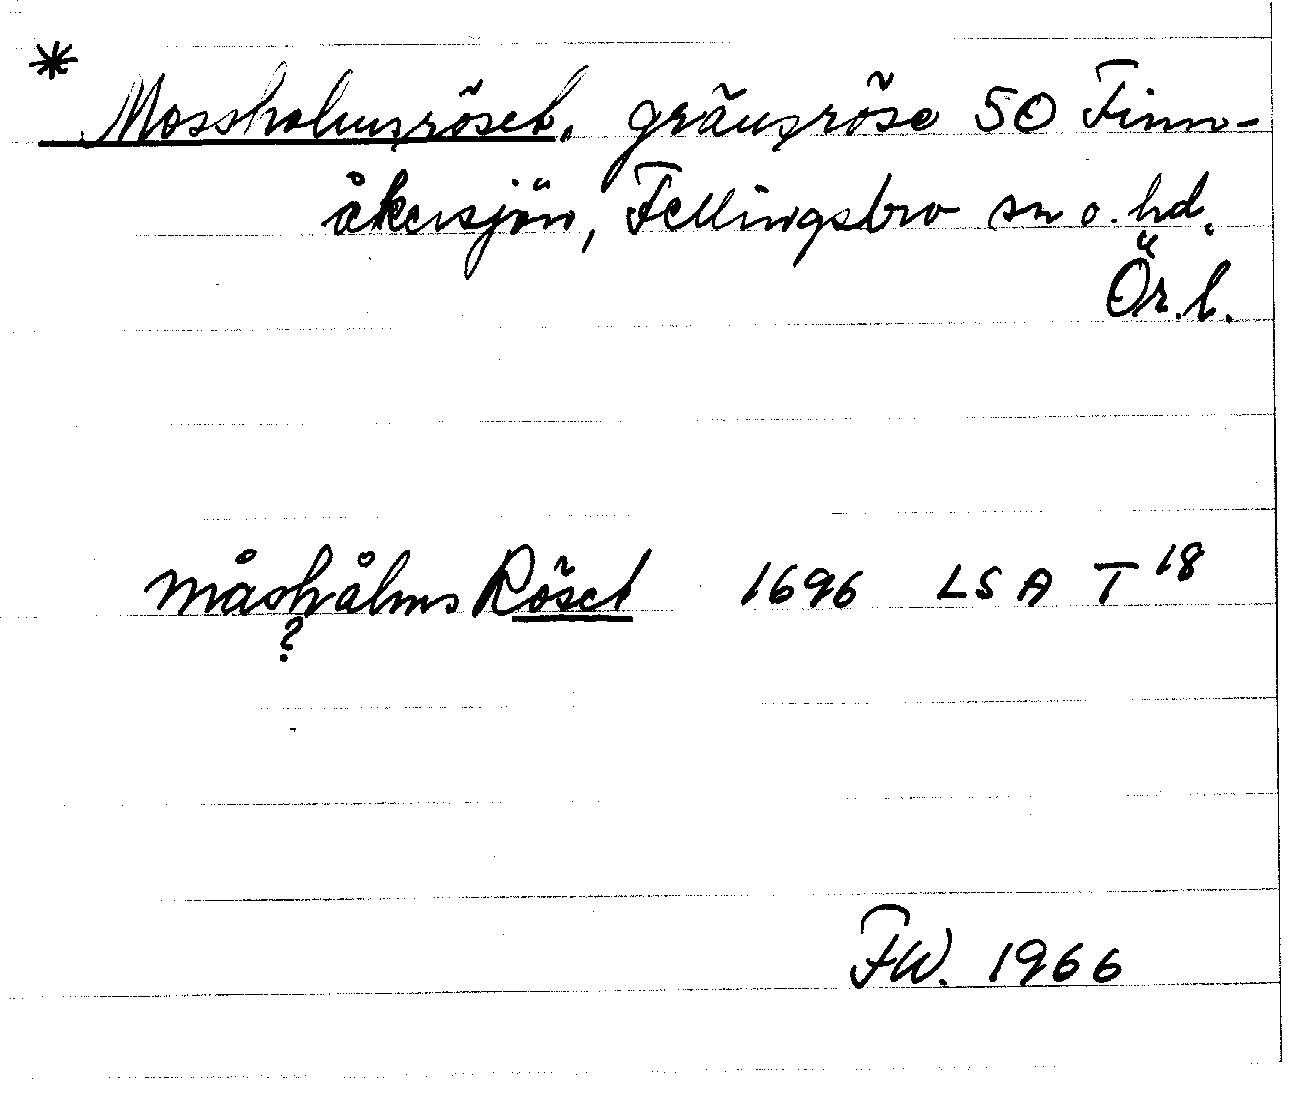 *
Mossholmsröset, gränsröse SO Finn-
åkersjön, Fellingsbro sn o. hd.
Ör. l.
måshålms Röset 1696 LSA T 18
?
FW. 1966